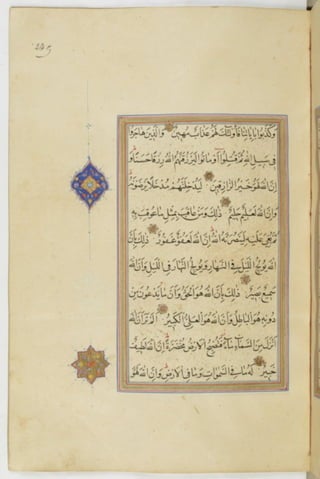 وَكَذَّبُوا بِاٰيَاتِنَا فَاُولٰئِكَ لَهُمْ عَذَابٌ مُهِينٌ وَالَّذِينَ هَاجَرُوا
فِي سَبِيلِ اللهِ ثُمَّ قُتِلُوا اَوْ مَاتُوا لَيَرْزُقَنَّهُمُ اللهُ رِزْقًا حَسَنًا وَ
اِنَّ اللهَ لَهُوَ خَيْرُ الرَّازِقِينَ لَيُدْخِلَنَّهُمْ مُدْخَلًا يَرْضَوْنَهُ
وَاِنَّ اللهَ لَعَلِيمٌ حَلِيمٌ ذٰلِكَ وَمَنْ عَاقَبَ بِمِثْلِ مَا عُوقِبَ بِهِ
ثُمَّ بُغِيَ عَلَيْهِ لَيَنْصُرَنَّهُ اللهُ اِنَّ اللهَ لَعَفُوٌّ غَفُورٌ ذٰلِكَ بِاَنَّ
اللهَ يُولِجُ اللَّيْلَ فِي النَّهَارِ وَيُولِجُ النَّهَارَ فِي اللَّيْلِ وَاَنَّ اللهَ
سَمِيعٌ بَصِيرٌ ذٰلِكَ بِاَنَّ اللهَ هُوَ الْحَقُّ وَاَنَّ مَا يَدْعُونَ مِنْ
دُونِهِ هُوَ الْبَاطِلُ وَاَنَّ اللهَ هُوَ الْعَلِيُّ الْكَبِيرُ اَلَمْ تَرَ اَنَّ اللهَ
اَنْزَلَ مِنَ السَّمَاءِ مَاءً فَتُصْبِحُ الْاَرْضُ مُخْضَرَّةً اِنَّ اللهَ لَطِيفٌ
خَبِيرٌ لَهُ مَا فِي السَّمٰوَاتِ وَمَا فِي الْاَرْضِ وَاِنَّ اللهَ لَهُوَ